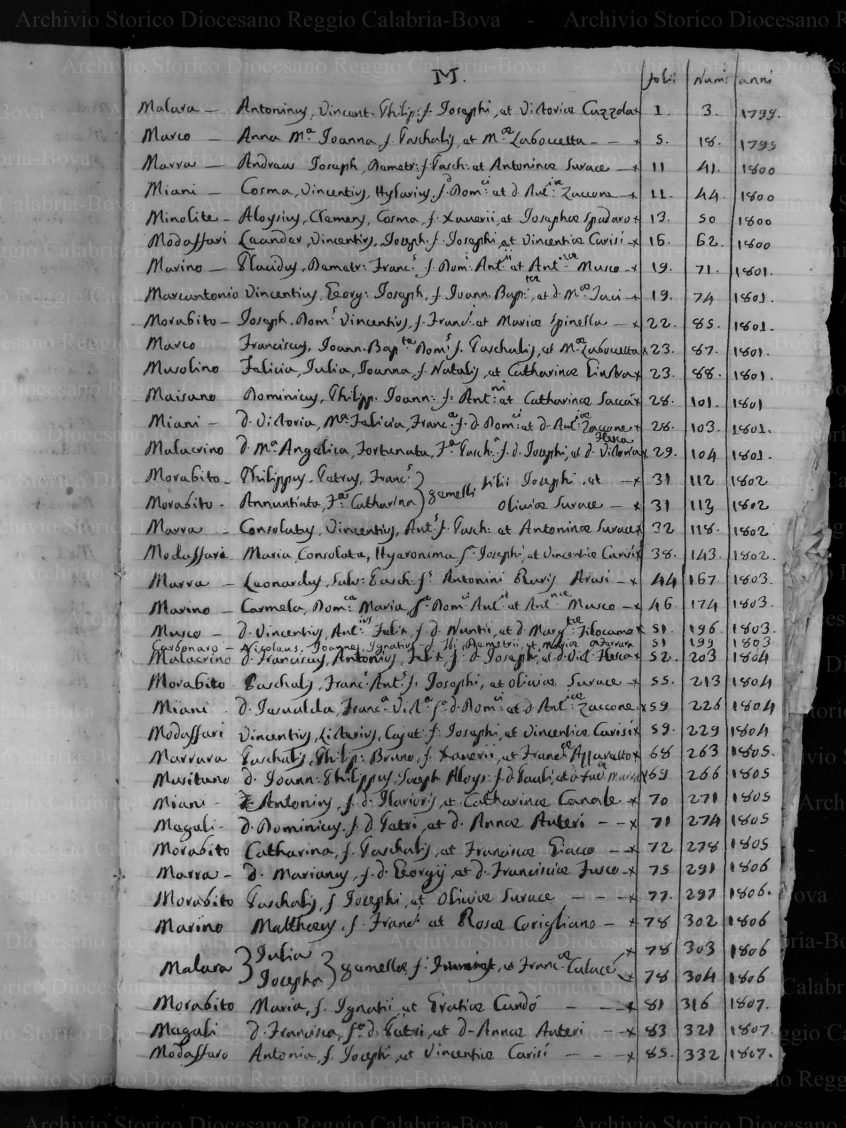 M. folii num: anni
Malara — Antoninus, Vincent. Philip: f. Iosephi, et Victoriæ Cuzzola x 1. 3. 1799.
Marco — Anna Mª Ioanna f. Paschalis, et Mæ Laboccetta - - x 5. 18. 1799
Marra — Andreas Ioseph, Demetr: f. Pasch: et Antoninæ Surace — x 11 41. 1800
Miani — Cosma, Vincentius, Hylarius, f. d. Dom.ci et d. Ant.æ Zaccone — x 11. 44. 1800
Minolite — Aloysius, Clemens, Cosma, f. Xaverii, et Iosephæ Spadaro x 13. 50 1800
Modaffari Leander, Vincentius, Ioseph. f. Iosephi, et Vincentiæ Carisi x 16. 62. 1800
Marino — Placidus, Demetr: Franc.s f. Dom: Ant.ii et Ant.næ Musco - x 19. 71. 1801.
Marcantonio Vincentius, Georg: Ioseph, f. Ioann. Bap.tæ, et d. Mæ Iaci - x 19. 74 1801.
Morabito — Ioseph. Dom.s Vincentius, f. Franc.i et Mariæ Spinella — x 22. 85. 1801.
Marco — Franciscus, Ioann. Bap.ta Dom.s f. Paschalis, et Mæ Laboccetta x 23. 87. 1801.
Musolino — Felicia, Iulia, Ioanna f. Natalis, et Catharinæ Ginstra x 23. 88. 1801.
Maisano Dominicus, Philipp. Ioann: f. Ant.ni et Catharinæ Saccà x 28. 101. 1801
Miani — d. Victoria, Mª Felicia, Franc.a f. d. Dom.ci et d. Ant.æ Zaccone x 28. 103. 1801.
Malacrino d. Mª Angelica, Fortunata, Fª Pasch.a f. d. Iosephi, et d. Victoriæ Flesca x 29. 104 1801.
Morabito — Philippus, Petrus, Franc.s } gemelli filii Iosephi, et — x 31 112 1802
Morabito - Annuntiata, Catharina } Oliviæ Surace — x 31 113 1802
Marra — Consolatus, Vincentius, Ant.s f. Pasch: et Antoninæ Surace x 32 118. 1802
Modaffari Maria, Consolata, Hyeronima fª Iosephi, et Vincentiæ Carisi x 38. 143. 1802.
Marra — Leonardus, Salv: Pasch: fs Antonini Arasi - x 44 167. 1803.
Marino — Carmela, Dom.ca Maria, fª Dom: Ant.ii et Ant.næ Musco - x 46. 174 1803.
Musco — d. Vincentius, Ant.ius Felix, f. d. Nuntii, et d. Marg.tæ Filocamo x 51. 196. 1803.
Carbonaro — Nicolaus, Ioannes, Ignatius, d. Demetrii, et Mariæ 51 199 1803
Malacrino d. Franciscus, Antonius, Felix, f. d. Ioseph, et d. Vict: Flesca x 52. 203 1804
Morabito Paschalis, Franc: Ant.s f. Iosephi, et Oliviæ Surace — x 55. 213 1804
Miani - d. Iesualda, Franc.a Vict.a fª d. Dom.ci et d. Ant.æ Zaccone x 59. 226 1804
Modaffari Vincentius, Licterius, Cajet: f. Iosephi, et Vincentiæ Carisi x 59. 229 1804
Marrara Paschalis, Philip: Bruno, f. Xaverii, et Franc.æ x 68 263 1805.
Musitano d. Ioann: Philippus, Ioseph Aloys: f. d. Pauli, et d. x 69 266 1805
Miani - Antonius, f. d. Ilarionis, et Catharinæ Canale — x 70 271 1805
Magali - d. Dominicus, f. d. Petri, et d. Annæ Auteri - - x 71 274 1805
Morabito Catharina, f. Paschalis, et Franciscæ — x 72 278 1805
Marra — d. Marianus, f. d. Georgij, et d. Franciscæ Fusco - x 75 291 1806
Morabito Paschalis, f. Iosephi, et Oliviæ Surace - - - x 77. 297 1806.
Marino Matthæus, f. Franc.i et Rosæ Corigliano — x 78 302 1806
Malara } Iulia } gemellæ f. et Franc.æ x 78 303 1806
Iosepha x 78 304 1806
Morabito Maria, f. Ignatii, et Gratiæ Candò - - - x 81 316 1807.
Magali d. Francisca, fª d. Petri, et d. Annæ Auteri - - x 83 321 1807
Modaffaro Antonia, f. Iosephi, et Vincentiæ Carisi - - - x 85. 332 1807.
Archivio Storico Diocesano Reggio Calabria-Bova